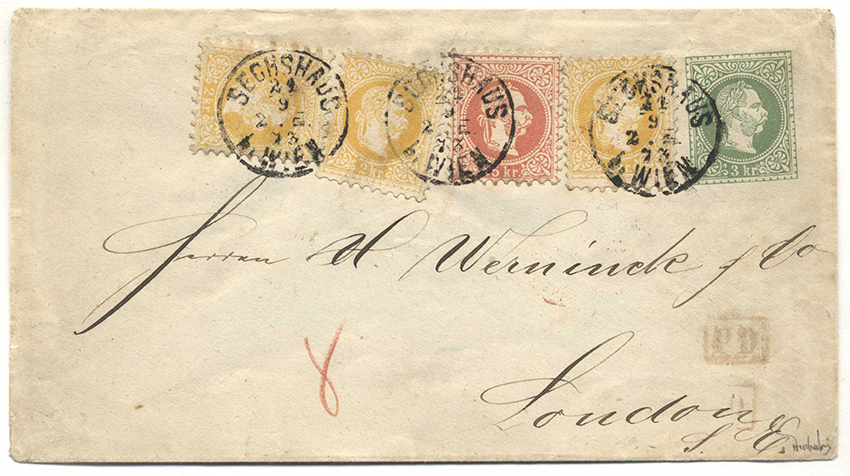 SECHSHAUS
24
9
73
WIEN
2 kr.
SECHSHAUS
WIEN
5 kr.
SECHSHAUS
24
9
73
WIEN
3 kr.
Herren H. Werninck & Co
8
P.D.
London
S. E.